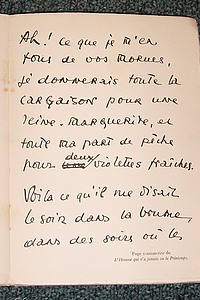 Ah ! Ce que je m'en
fous de vos mornes,
je donnerais toute la
cargaison pour une
reine-marguerite, et
toute ma part de pêche
pour deux violettes fraîches.
Voilà ce qu'il me disait
le soir dans la brume,
dans des soirs où les
Page manuscrite de
L'Homme qui n'a jamais vu le Printemps.